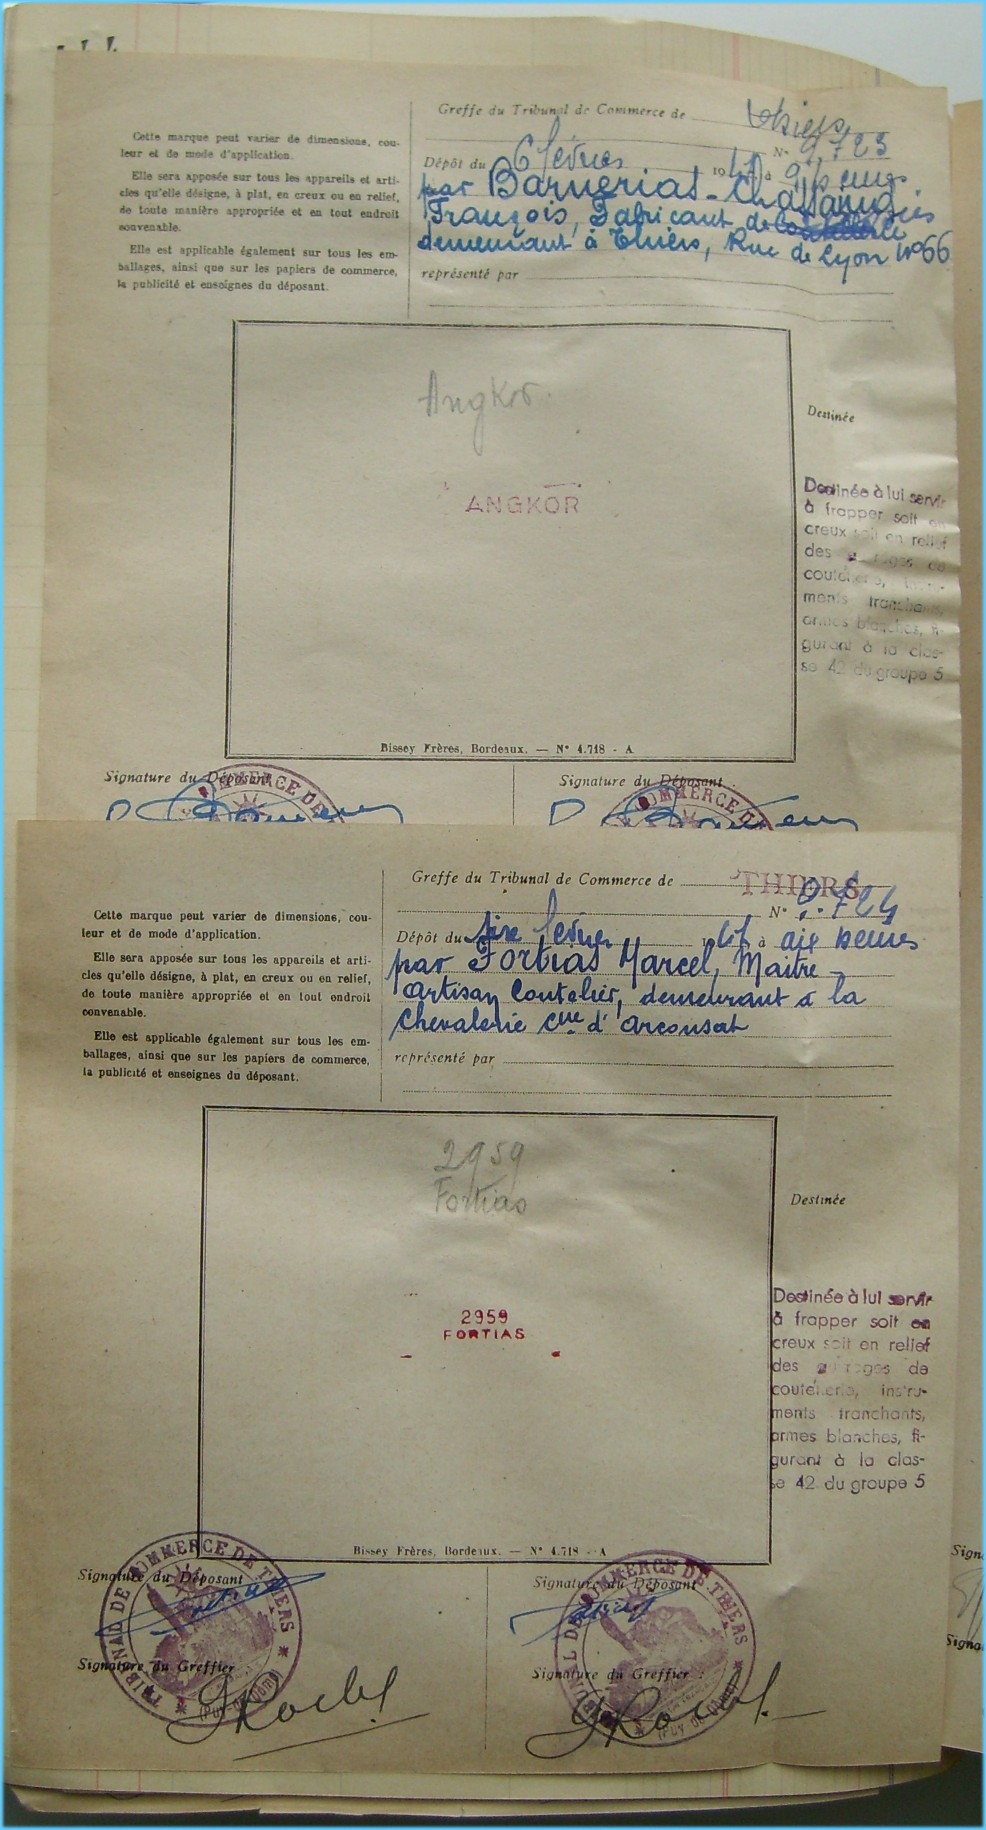 Greffe du Tribunal de Commerce de Thiers
N° 9.723
Cette marque peut varier de dimensions, cou-
leur et de mode d'application.
Elle sera apposée sur tous les appareils et arti-
cles qu'elle désigne, à plat, en creux ou en relief,
de toute manière appropriée et en tout endroit
convenable.
Elle est applicable également sur tous les em-
ballages, ainsi que sur les papiers de commerce,
la publicité et enseignes du déposant.
Dépôt du 6 19 à
par Barnerias-
François, Fabricant de
demeurant à Thiers, Rue de Lyon N°66
représenté par
Angkor.
ANGKOR
Destinée
Destinée à lui servir
à frapper soit en
creux soit en relief
des de
coutellerie, instru-
ments tranchants,
armes blanches, fi-
gurant à la clas-
se 42 du groupe 5
Bissey Frères, Bordeaux. — N° 4.718 - A
Signature du Déposant
Signature du Déposant :
COMMERCE DE
COMMERCE DE
Greffe du Tribunal de Commerce de THIERS
N° 9.724
Cette marque peut varier de dimensions, cou-
leur et de mode d'application.
Elle sera apposée sur tous les appareils et arti-
cles qu'elle désigne, à plat, en creux ou en relief,
de toute manière appropriée et en tout endroit
convenable.
Elle est applicable également sur tous les em-
ballages, ainsi que sur les papiers de commerce,
la publicité et enseignes du déposant.
Dépôt du à
par Fortias Marcel, Maitre
artisan Coutelier, demeurant à la
Chevalerie Cne d'arconsat
représenté par
2959
Fortias
2959
FORTIAS
Destinée
Destinée à lui servir
à frapper soit en
creux soit en relief
des de
coutellerie, instru-
ments tranchants,
armes blanches, fi-
gurant à la clas-
se 42 du groupe 5
Bissey Frères, Bordeaux. — N° 4.718 - A
Signature du Déposant
Signature du Déposant
TRIBUNAL DE COMMERCE DE THIERS
(Puy-de-Dôme)
TRIBUNAL DE COMMERCE DE THIERS
(Puy-de-Dôme)
Signature du Greffier
Signature du Greffier :